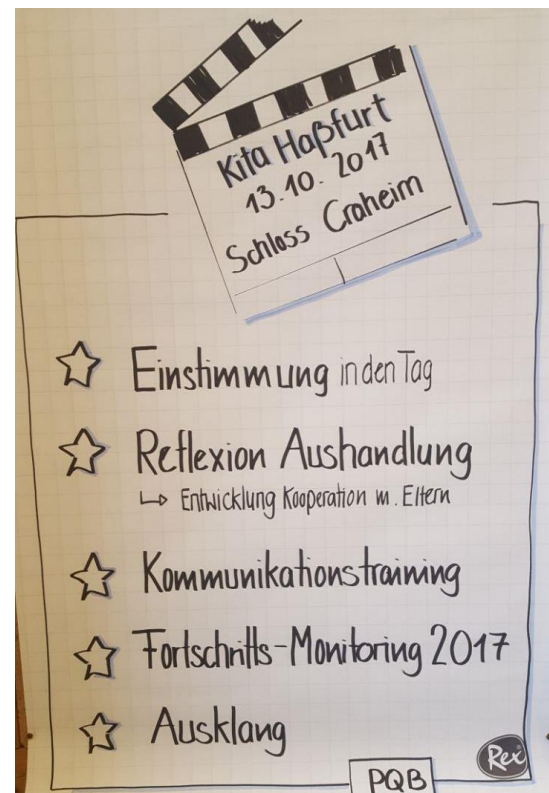 Kita Haßfurt
13.10.2017
Schloss Craheim
Einstimmung in den Tag
Reflexion Aushandlung
↳ Entwicklung Kooperation m. Eltern
Kommunikationstraining
Fortschritts-Monitoring 2017
Ausklang
PQB
Rex